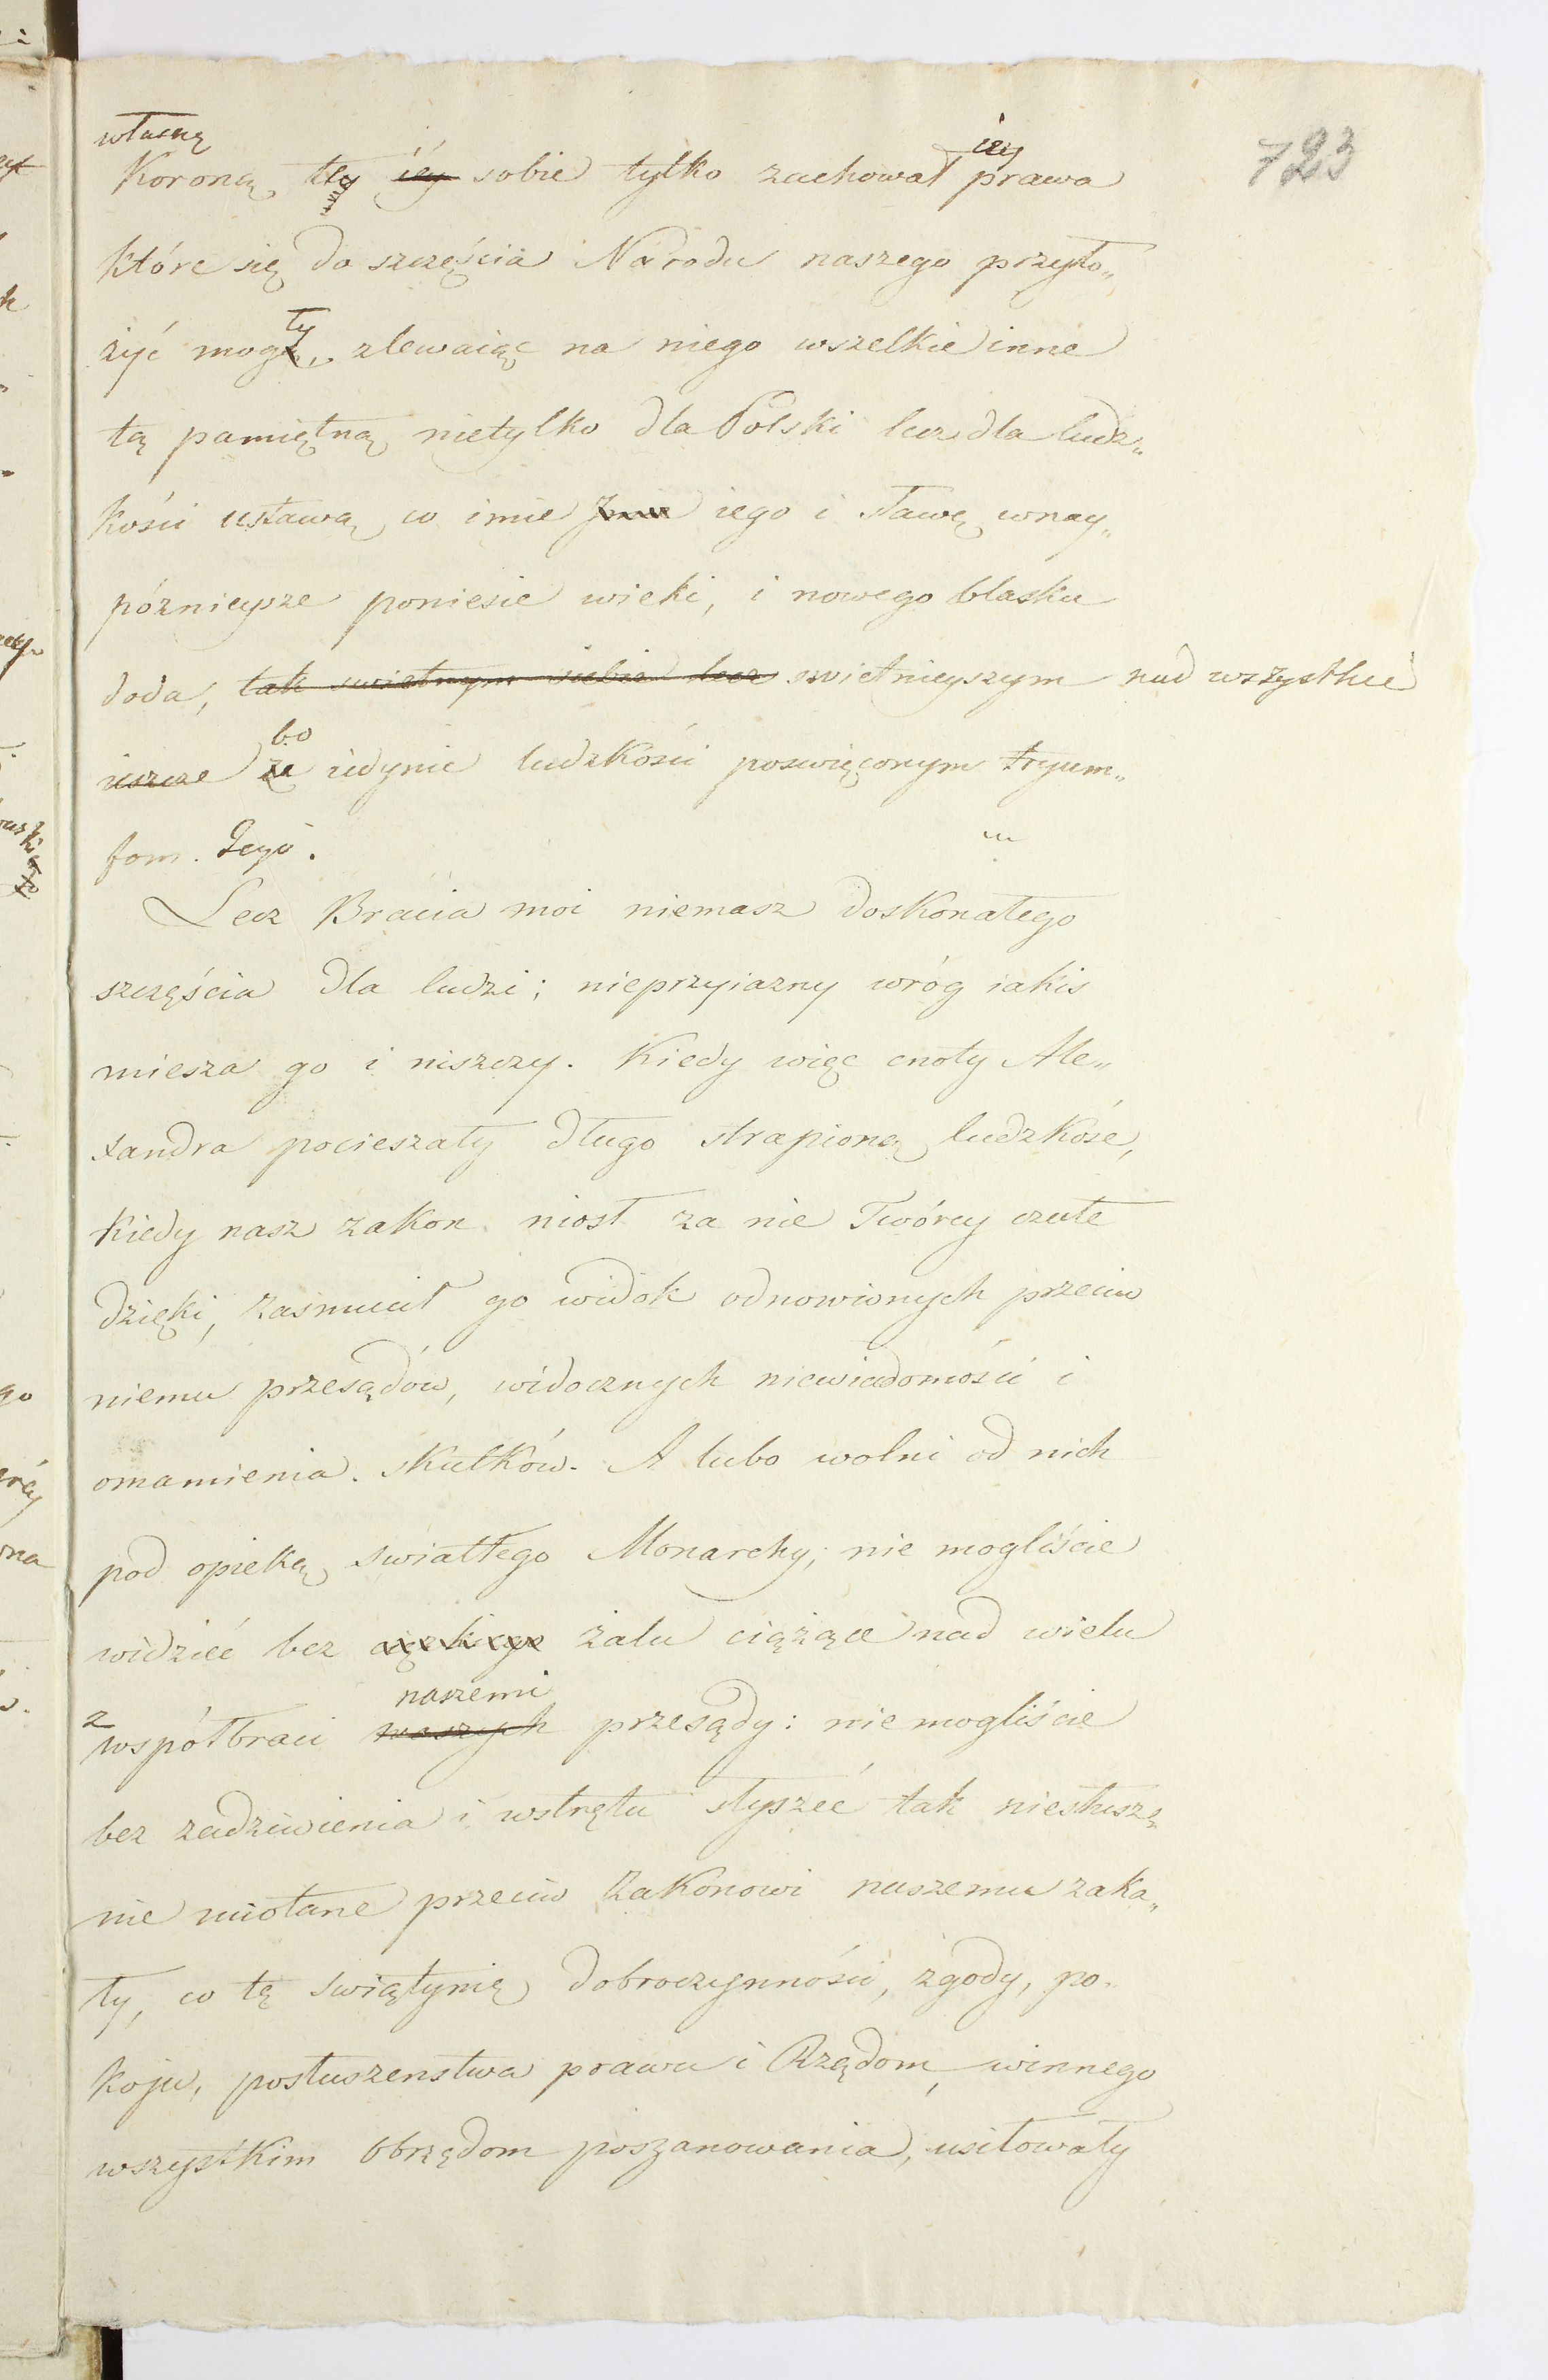 723
własną
iey
Koroną, tey iéy sobie tylko zachował prawa
które się do szczęścia Narodu naszego przyło„
ty
żyć mogą, zlewaiąc na niego wszelkie inne
tą pamiętną nietylko dla Polski lecz dla ludz„
kości ustawą, co imie Imie iego i sławę w nay„
póznieysze poniesie wieki, i nowego blasku
doda, tak swietnym siebie lecz swietnieyszym nad wszystkie
bo
ieszcze że iedynie ludzkości poswięconym tryum„
fom. Jego.
Lecz Bracia moi niemasz doskonałego
szczęścia dla ludzi; nieprzyiazny wróg iakis
miesza go i niszczy. Kiedy więc cnoty Ale„
xandra pocieszały długo strapioną ludzkość,
Kiedy nasz zakon niosł za nie Twórcy czułe
dzięki, zasmucił go widok odnowionych przeciw
niemu przesądów, widocznych niewiadomości i
omamienia skutków. A lubo wolni od nich
pod opieką swiatłego Monarchy, nie mogliście
widzieć bez żalu ciążące nad wielu
naszemi
z współbraci waszych przesądy: nie mogliście
bez zadziwienia i wstrętu słyszeć tak niesłusz„
nie miotane przeciw Zakonowi naszemu zaka„
ły, co tę swiątynię dobroczynności, zgody, po„
koju, posłuszenstwa prawu i Rządom, winnego
wszystkim Obrządom poszanowania, usiłowały